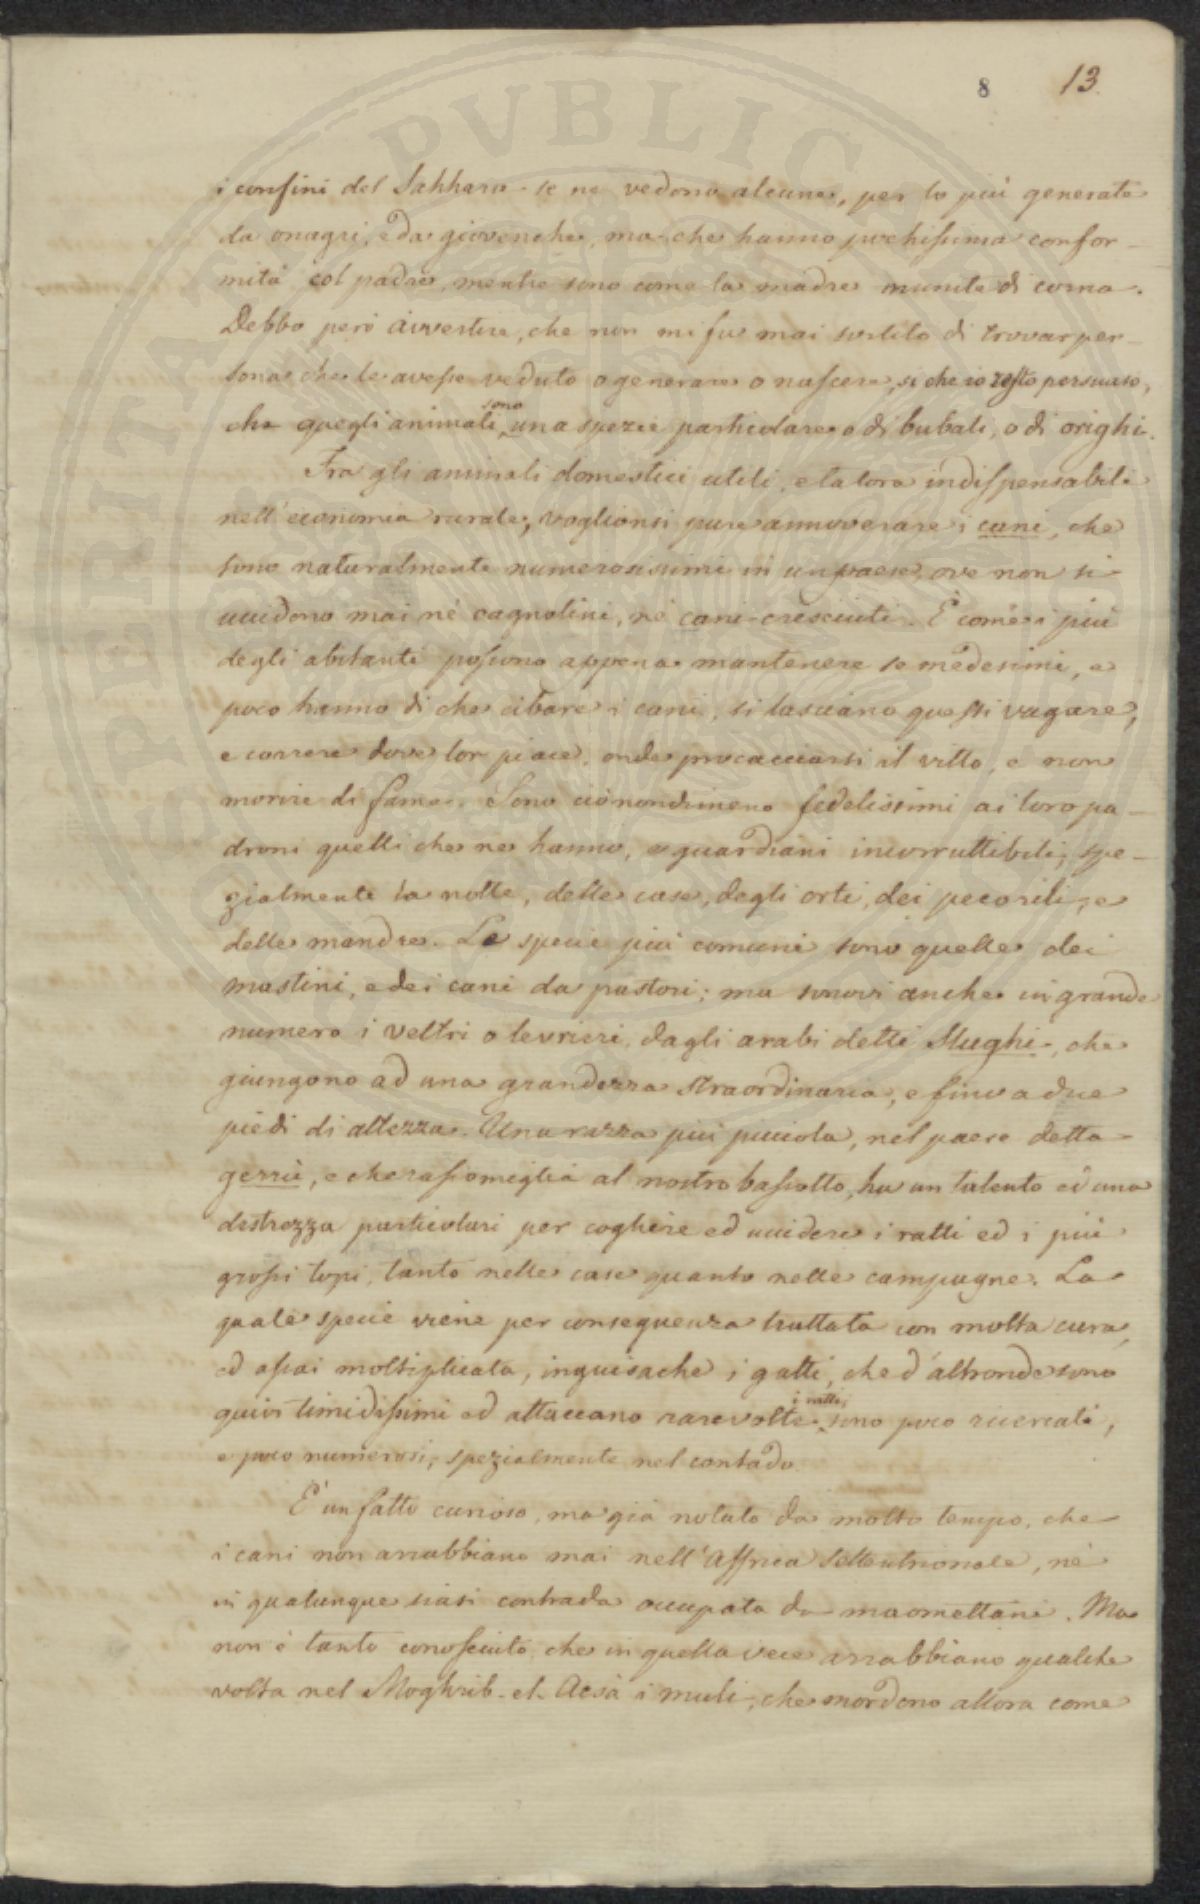 8 13.
i confini del Sahhara se ne vedono alcune, per lo più generate
da onagri, e da giovenche, ma che hanno pochissima confor-
mità col padre, mentre sono come la madre munite di corna.
Debbo però avvertire, che non mi fu mai sortito di trovar per-
sona che le avesse vedute o generare o nascere, sì che io resto persuaso,
che quegli animali sono una spezie particolare o di bubali, o di orighi.
Fra gli animali domestici utili, e talora indispensabili
nell'economia rurale, voglionsi pure annoverare i cani, che
sono naturalmente numerosissimi in un paese, ove non si
uccidono mai nè cagnolini, nè cani cresciuti. E come i più
degli abitanti possono appena mantenere se medesimi, e
poco hanno di che cibare i cani, si lasciano questi vagare,
e correre dove lor piace, onde procacciarsi il vitto, e non
morire di fame. Sono ciònondimeno fedelissimi ai loro pa-
droni quelli che ne hanno, e guardiani incorruttibili, spe-
zialmente la notte, delle case, degli orti, dei pecorili, e
delle mandre. Le specie più comuni sono quelle dei
mastini, e dei cani da pastori; ma sonovi anche in grande
numero i veltri o levrieri, dagli arabi detti Slughi, che
giungono ad una grandezza straordinaria, e fino a due
piedi di altezza. Una razza più picciola, nel paese detta
gerriè, e che rassomiglia al nostro bassotto, ha un talento ed una
destrezza particolari per cogliere ed uccidere i ratti ed i più
grossi topi, tanto nelle case quanto nelle campagne. La
quale specie viene per conseguenza trattata con molta cura,
ed assai moltiplicata, inguisache i gatti, che d'altronde sono
quivi timidissimi ed attaccano rare volte i ratti, sono poco ricercati,
e poco numerosi, spezialmente nel contado.
È un fatto curioso, ma già notato da molto tempo, che
i cani non arrabbiano mai nell'Affrica Settentrionale, nè
in qualunque siasi contrada occupata da maomettani. Ma
non è tanto conosciuto, che in quella vece arrabbiano qualche
volta nel Moghrib-el-Acsà i muli, che mordono allora come